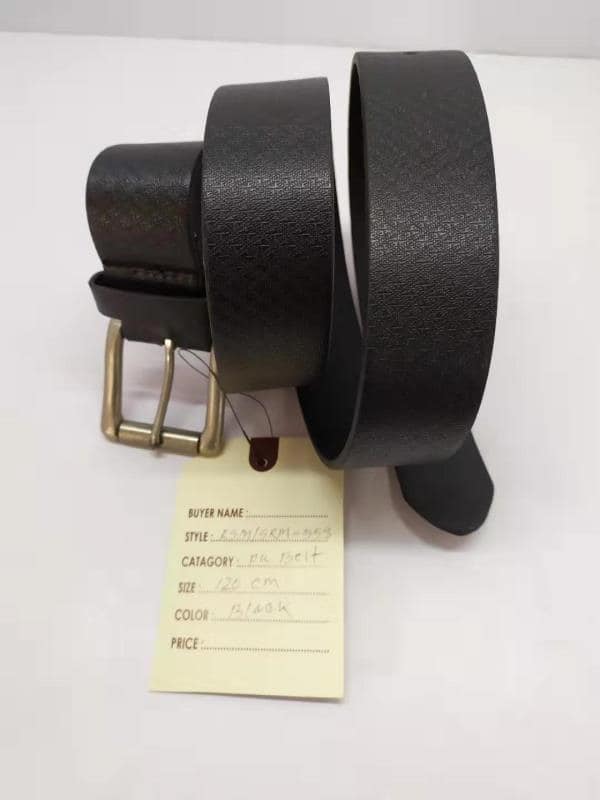 BUYER NAME :
STYLE :
CATAGORY : PU Belt
SIZE : 120 cm
COLOR : Black
PRICE :